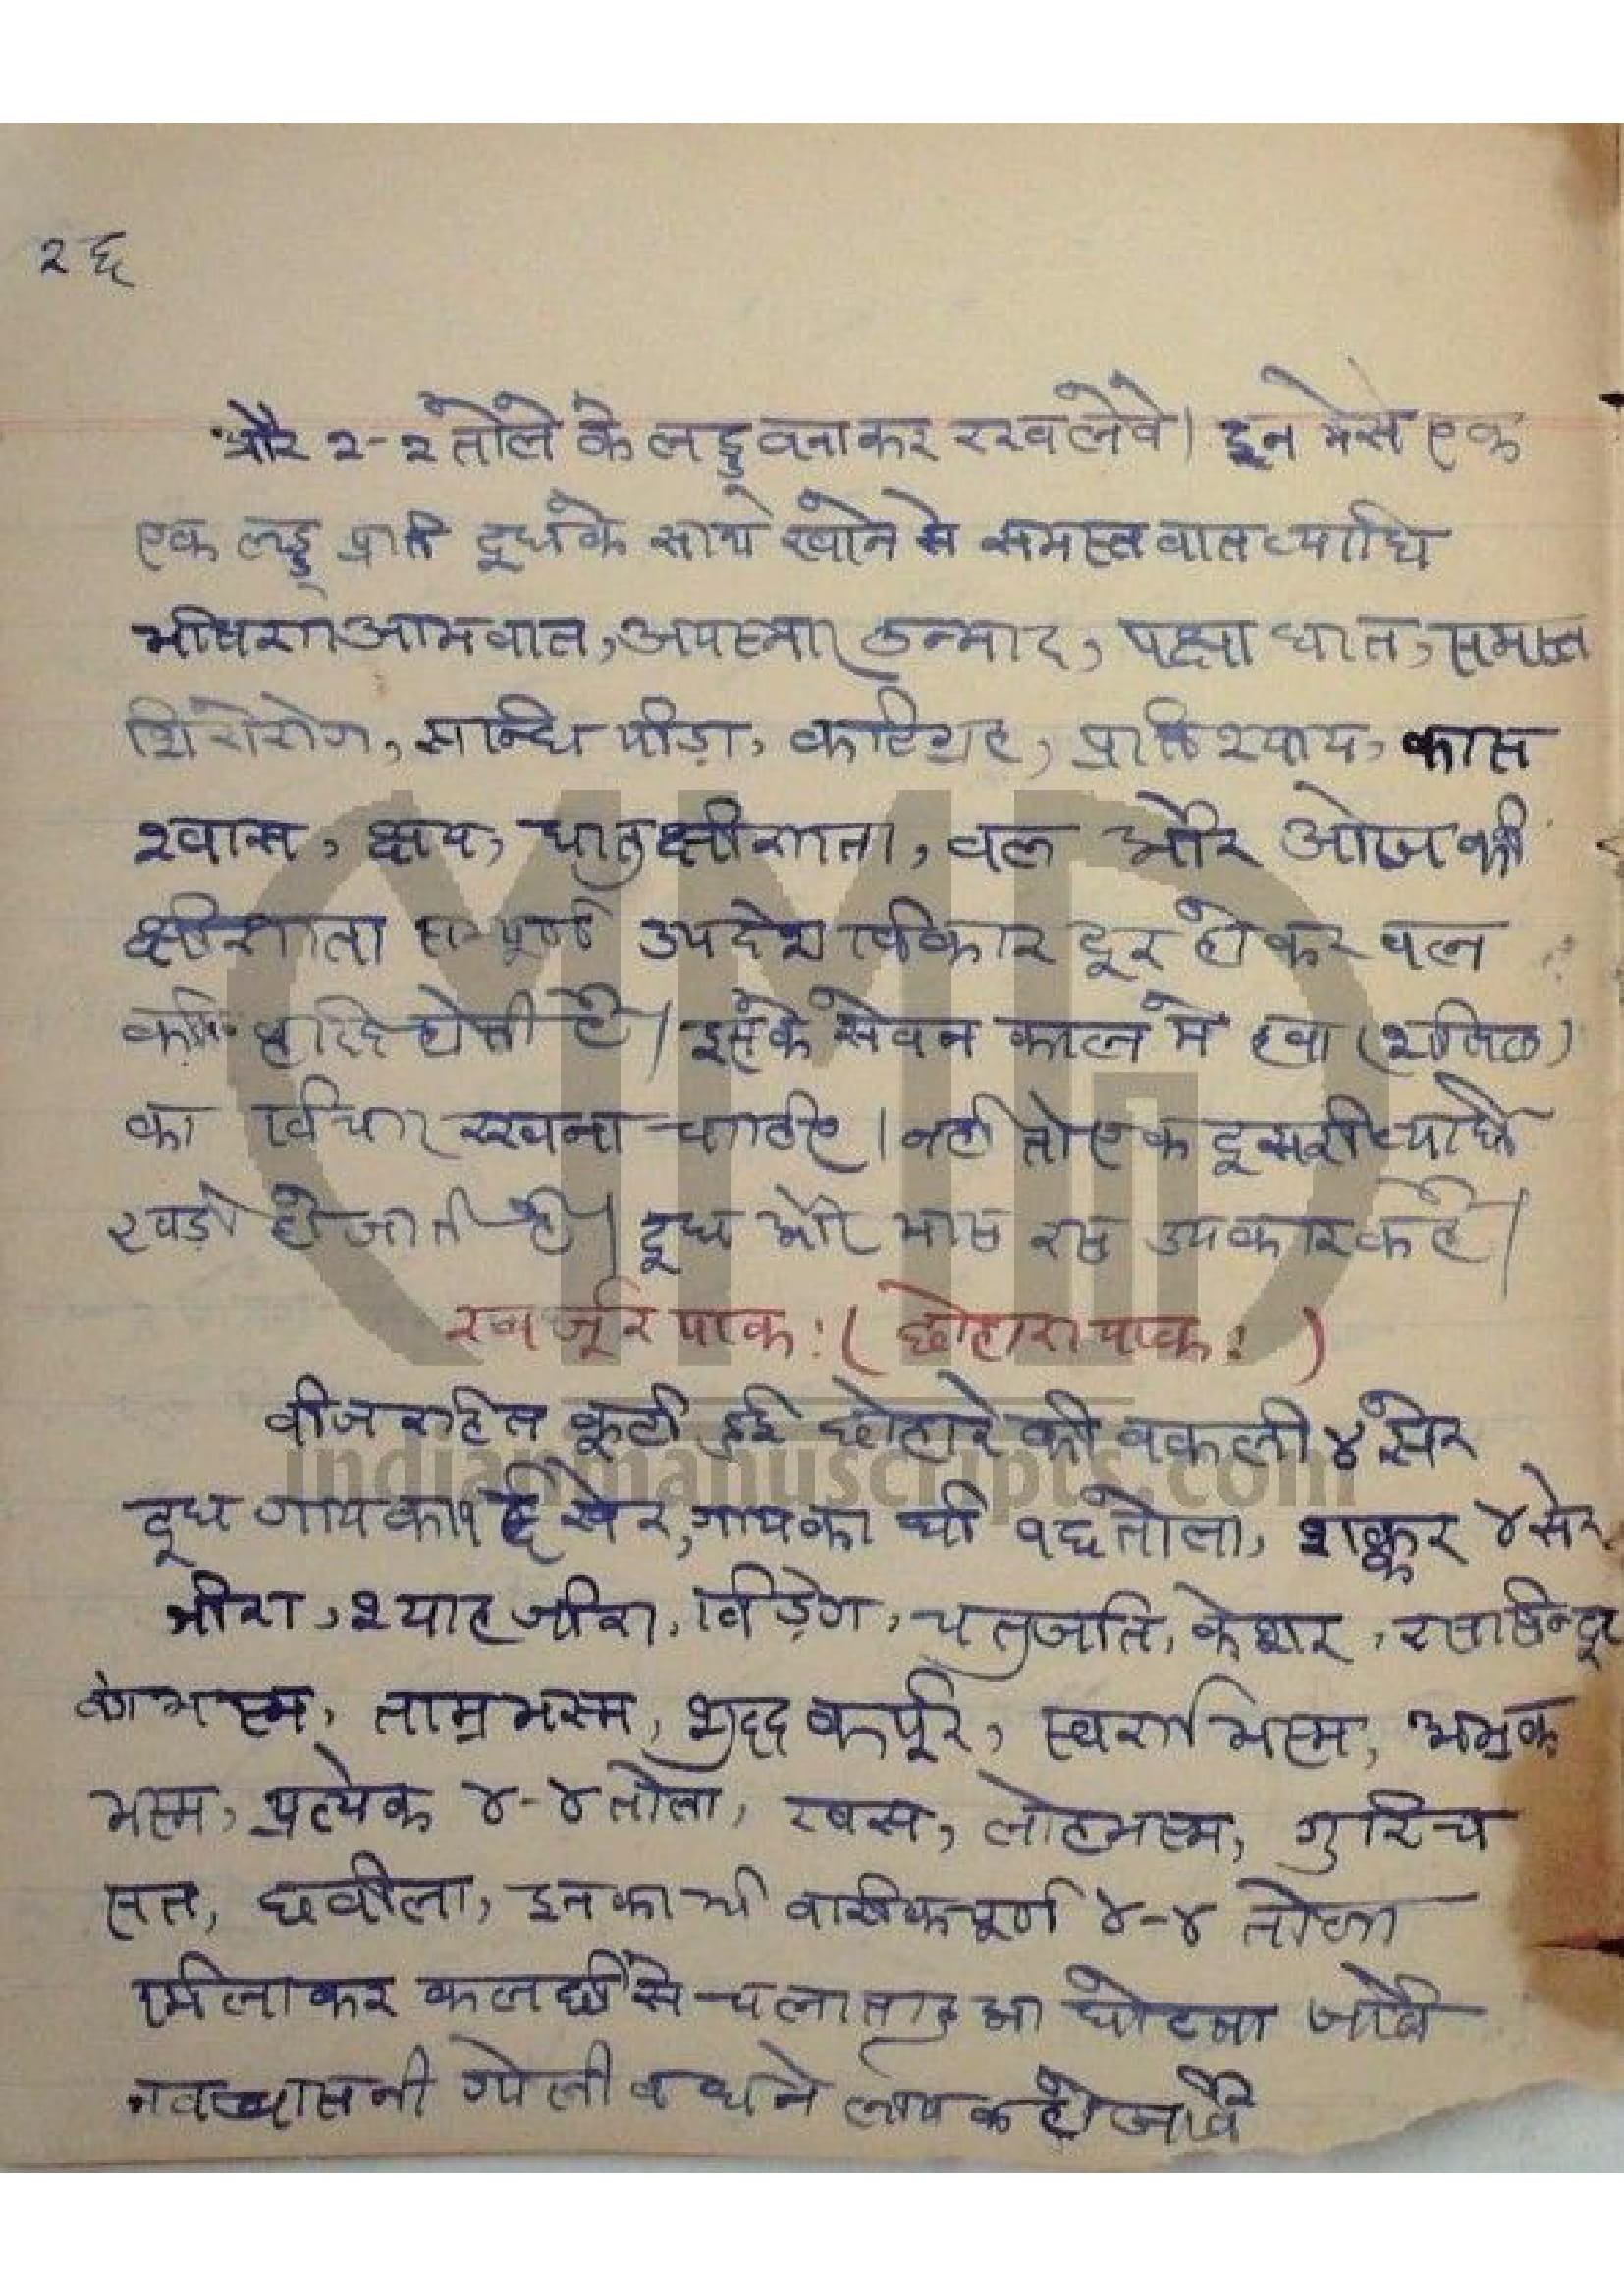 २६
और २-२ तोले के लड्डु वनाकर रखलेवे। इन मेसे एक
एक लड्डु प्राति दूधके साथ खोने से समस्त वात व्याधि
भीषण आमवात, अपस्मार उन्माद, पक्षाघात, समस्त
शिरोरोग, सन्धि पीड़ा, कटिग्रह, प्रातिश्याय, कास
श्वास, क्षय, धातुक्षीणता, वल और ओज की
क्षीणता सम्पूर्ण उपदंश विकार दूर होकर वल
की वृद्धि होती है। इसके सेवन काल मे हवा
का विचार रखना चाहिए। नही तो एक दूसरी व्याधि
खड़ी हो जाती है। दूध और मास रस उपकारक है।
खर्जूर पाक: (छोहारा पाक: )
वीज रहित कूटी हुई छोहारे की वकली ४ सेर
दूध गाय का १६ सेर, गायका घी १६ तोला, शक्कर ४ सेर
जीरा, श्याह जीरा, विड़ंग, चतुर्जाति, केशर, रससिन्दूर
वंगभस्म, ताम्रभस्म, शुद्ध कर्पूर, स्वर्णभस्म, अभ्रक
भस्म, प्रत्येक ४-४ तोला, खस, लोहभस्म, गुरिच
सत, छवीला, इनका भी वारीक चूर्ण ४-४ तोला
मिलाकर कलछी से चलाता हुआ घोटता जावै
जव चासनी गोली वधने लायक हो जावै
indianmanuscripts.com